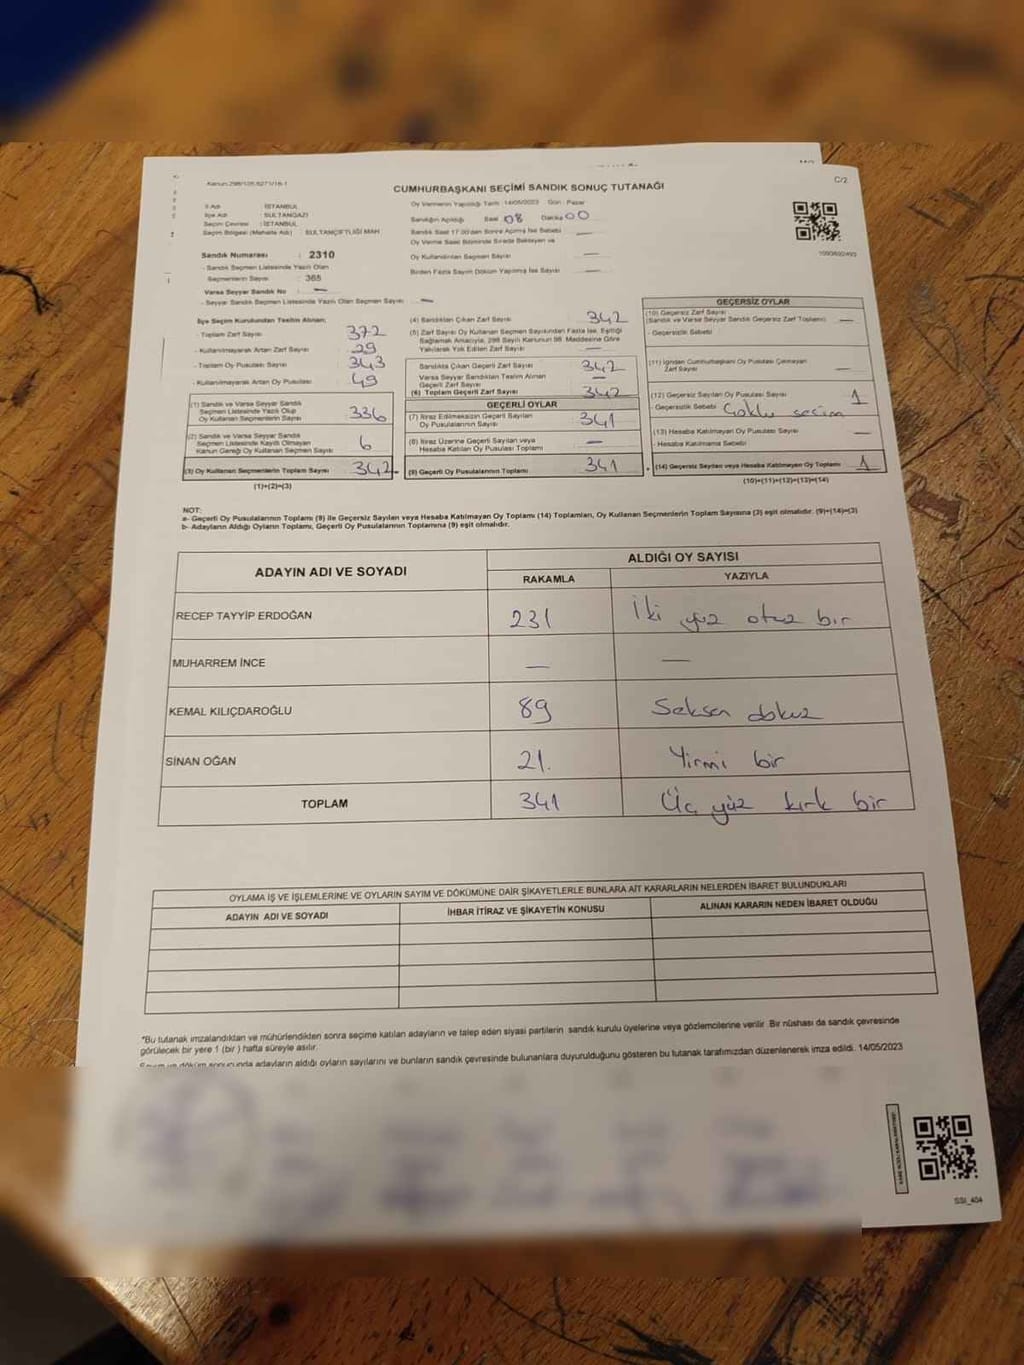 Kanun:298/105,6271/16-1
CUMHURBAŞKANI SEÇİMİ SANDIK SONUÇ TUTANAĞI
C/2
İl Adı : İSTANBUL
İlçe Adı : SULTANGAZİ
Seçim Çevresi : İSTANBUL
Seçim Bölgesi (Mahalle Adı) : SULTANÇİFTLİĞİ MAH
Sandık Numarası : 2310
- Sandık Seçmen Listesinde Yazılı Olan
Seçmenlerin Sayısı : 365
Varsa Seyyar Sandık No : —
- Seyyar Sandık Seçmen Listesinde Yazılı Olan Seçmen Sayısı : —
Oy Vermenin Yapıldığı Tarih : 14/05/2023 Gün : Pazar
Sandığın Açıldığı Saat 08 Dakika 00
Sandık Saat 17.00'den Sonra Açılmış İse Sebebi —
Oy Verme Saati Bitiminde Sırada Bekleyen ve
Oy Kullandırılan Seçmen Sayısı —
Birden Fazla Sayım Döküm Yapılmış İse Sayısı —
1093692493
İlçe Seçim Kurulundan Teslim Alınan;
- Toplam Zarf Sayısı 372
- Kullanılmayarak Artan Zarf Sayısı 29
- Toplam Oy Pusulası Sayısı 343
- Kullanılmayarak Artan Oy Pusulası 49
(1) Sandık ve Varsa Seyyar Sandık
Seçmen Listesinde Yazılı Olup
Oy Kullanan Seçmenlerin Sayısı 336
(2) Sandık ve Varsa Seyyar Sandık
Seçmen Listesinde Kayıtlı Olmayan
Kanun Gereği Oy Kullanan Seçmen Sayısı 6
(3) Oy Kullanan Seçmenlerin Toplam Sayısı 342
(1)+(2)=(3)
(4) Sandıktan Çıkan Zarf Sayısı 342
(5) Zarf Sayısı Oy Kullanan Seçmen Sayısından Fazla İse, Eşitliği
Sağlamak Amacıyla, 298 Sayılı Kanunun 98. Maddesine Göre
Yakılarak Yok Edilen Zarf Sayısı —
Sandıkta Çıkan Geçerli Zarf Sayısı 342
Varsa Seyyar Sandıktan Teslim Alınan
Geçerli Zarf Sayısı —
(6) Toplam Geçerli Zarf Sayısı 342
GEÇERLİ OYLAR
(7) İtiraz Edilmeksizin Geçerli Sayılan
Oy Pusulalarının Sayısı 341
(8) İtiraz Üzerine Geçerli Sayılan veya
Hesaba Katılan Oy Pusulası Toplamı —
(9) Geçerli Oy Pusulalarının Toplamı 341
GEÇERSİZ OYLAR
(10) Geçersiz Zarf Sayısı
(Sandık ve Varsa Seyyar Sandık Geçersiz Zarf Toplamı) —
- Geçersizlik Sebebi
(11) İçinden Cumhurbaşkanı Oy Pusulası Çıkmayan
Zarf Sayısı —
(12) Geçersiz Sayılan Oy Pusulası Sayısı 1
- Geçersizlik Sebebi Çoklu seçim
(13) Hesaba Katılmayan Oy Pusulası Sayısı —
- Hesaba Katılmama Sebebi
(14) Geçersiz Sayılan veya Hesaba Katılmayan Oy Toplamı 1
(10)+(11)+(12)+(13)=(14)
NOT:
a- Geçerli Oy Pusulalarının Toplamı (9) ile Geçersiz Sayılan veya Hesaba Katılmayan Oy Toplamı (14) Toplamları, Oy Kullanan Seçmenlerin Toplam Sayısına (3) eşit olmalıdır. (9)+(14)=(3)
b- Adayların Aldığı Oyların Toplamı, Geçerli Oy Pusulalarının Toplamına (9) eşit olmalıdır.
ADAYIN ADI VE SOYADI
ALDIĞI OY SAYISI
RAKAMLA YAZIYLA
RECEP TAYYİP ERDOĞAN 231 İki yüz otuz bir
MUHARREM İNCE — —
KEMAL KILIÇDAROĞLU 89 Seksen dokuz
SİNAN OĞAN 21. Yirmi bir
TOPLAM 341 Üç yüz kırk bir
OYLAMA İŞ VE İŞLEMLERİNE VE OYLARIN SAYIM VE DÖKÜMÜNE DAİR ŞİKAYETLERLE BUNLARA AİT KARARLARIN NELERDEN İBARET BULUNDUKLARI
ADAYIN ADI VE SOYADI İHBAR İTİRAZ VE ŞİKAYETİN KONUSU ALINAN KARARIN NEDEN İBARET OLDUĞU
*Bu tutanak imzalandıktan ve mühürlendikten sonra seçime katılan adayların ve talep eden siyasi partilerin sandık kurulu üyelerine veya gözlemcilerine verilir. Bir nüshası da sandık çevresinde
görülecek bir yere 1 (bir) hafta süreyle asılır.
Sayım ve döküm sonucunda adayların aldığı oyların sayılarını ve bunların sandık çevresinde bulunanlara duyurulduğunu gösteren bu tutanak tarafımızdan düzenlenerek imza edildi. 14/05/2023
SSI_404